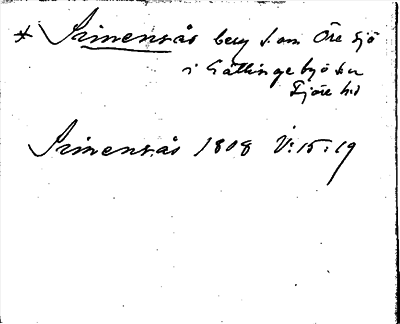 * Simensås berg S. om Öre sjö
i Gällinge by ö. ku
Fjäre hd
Simensås 1808 V: 15: 19